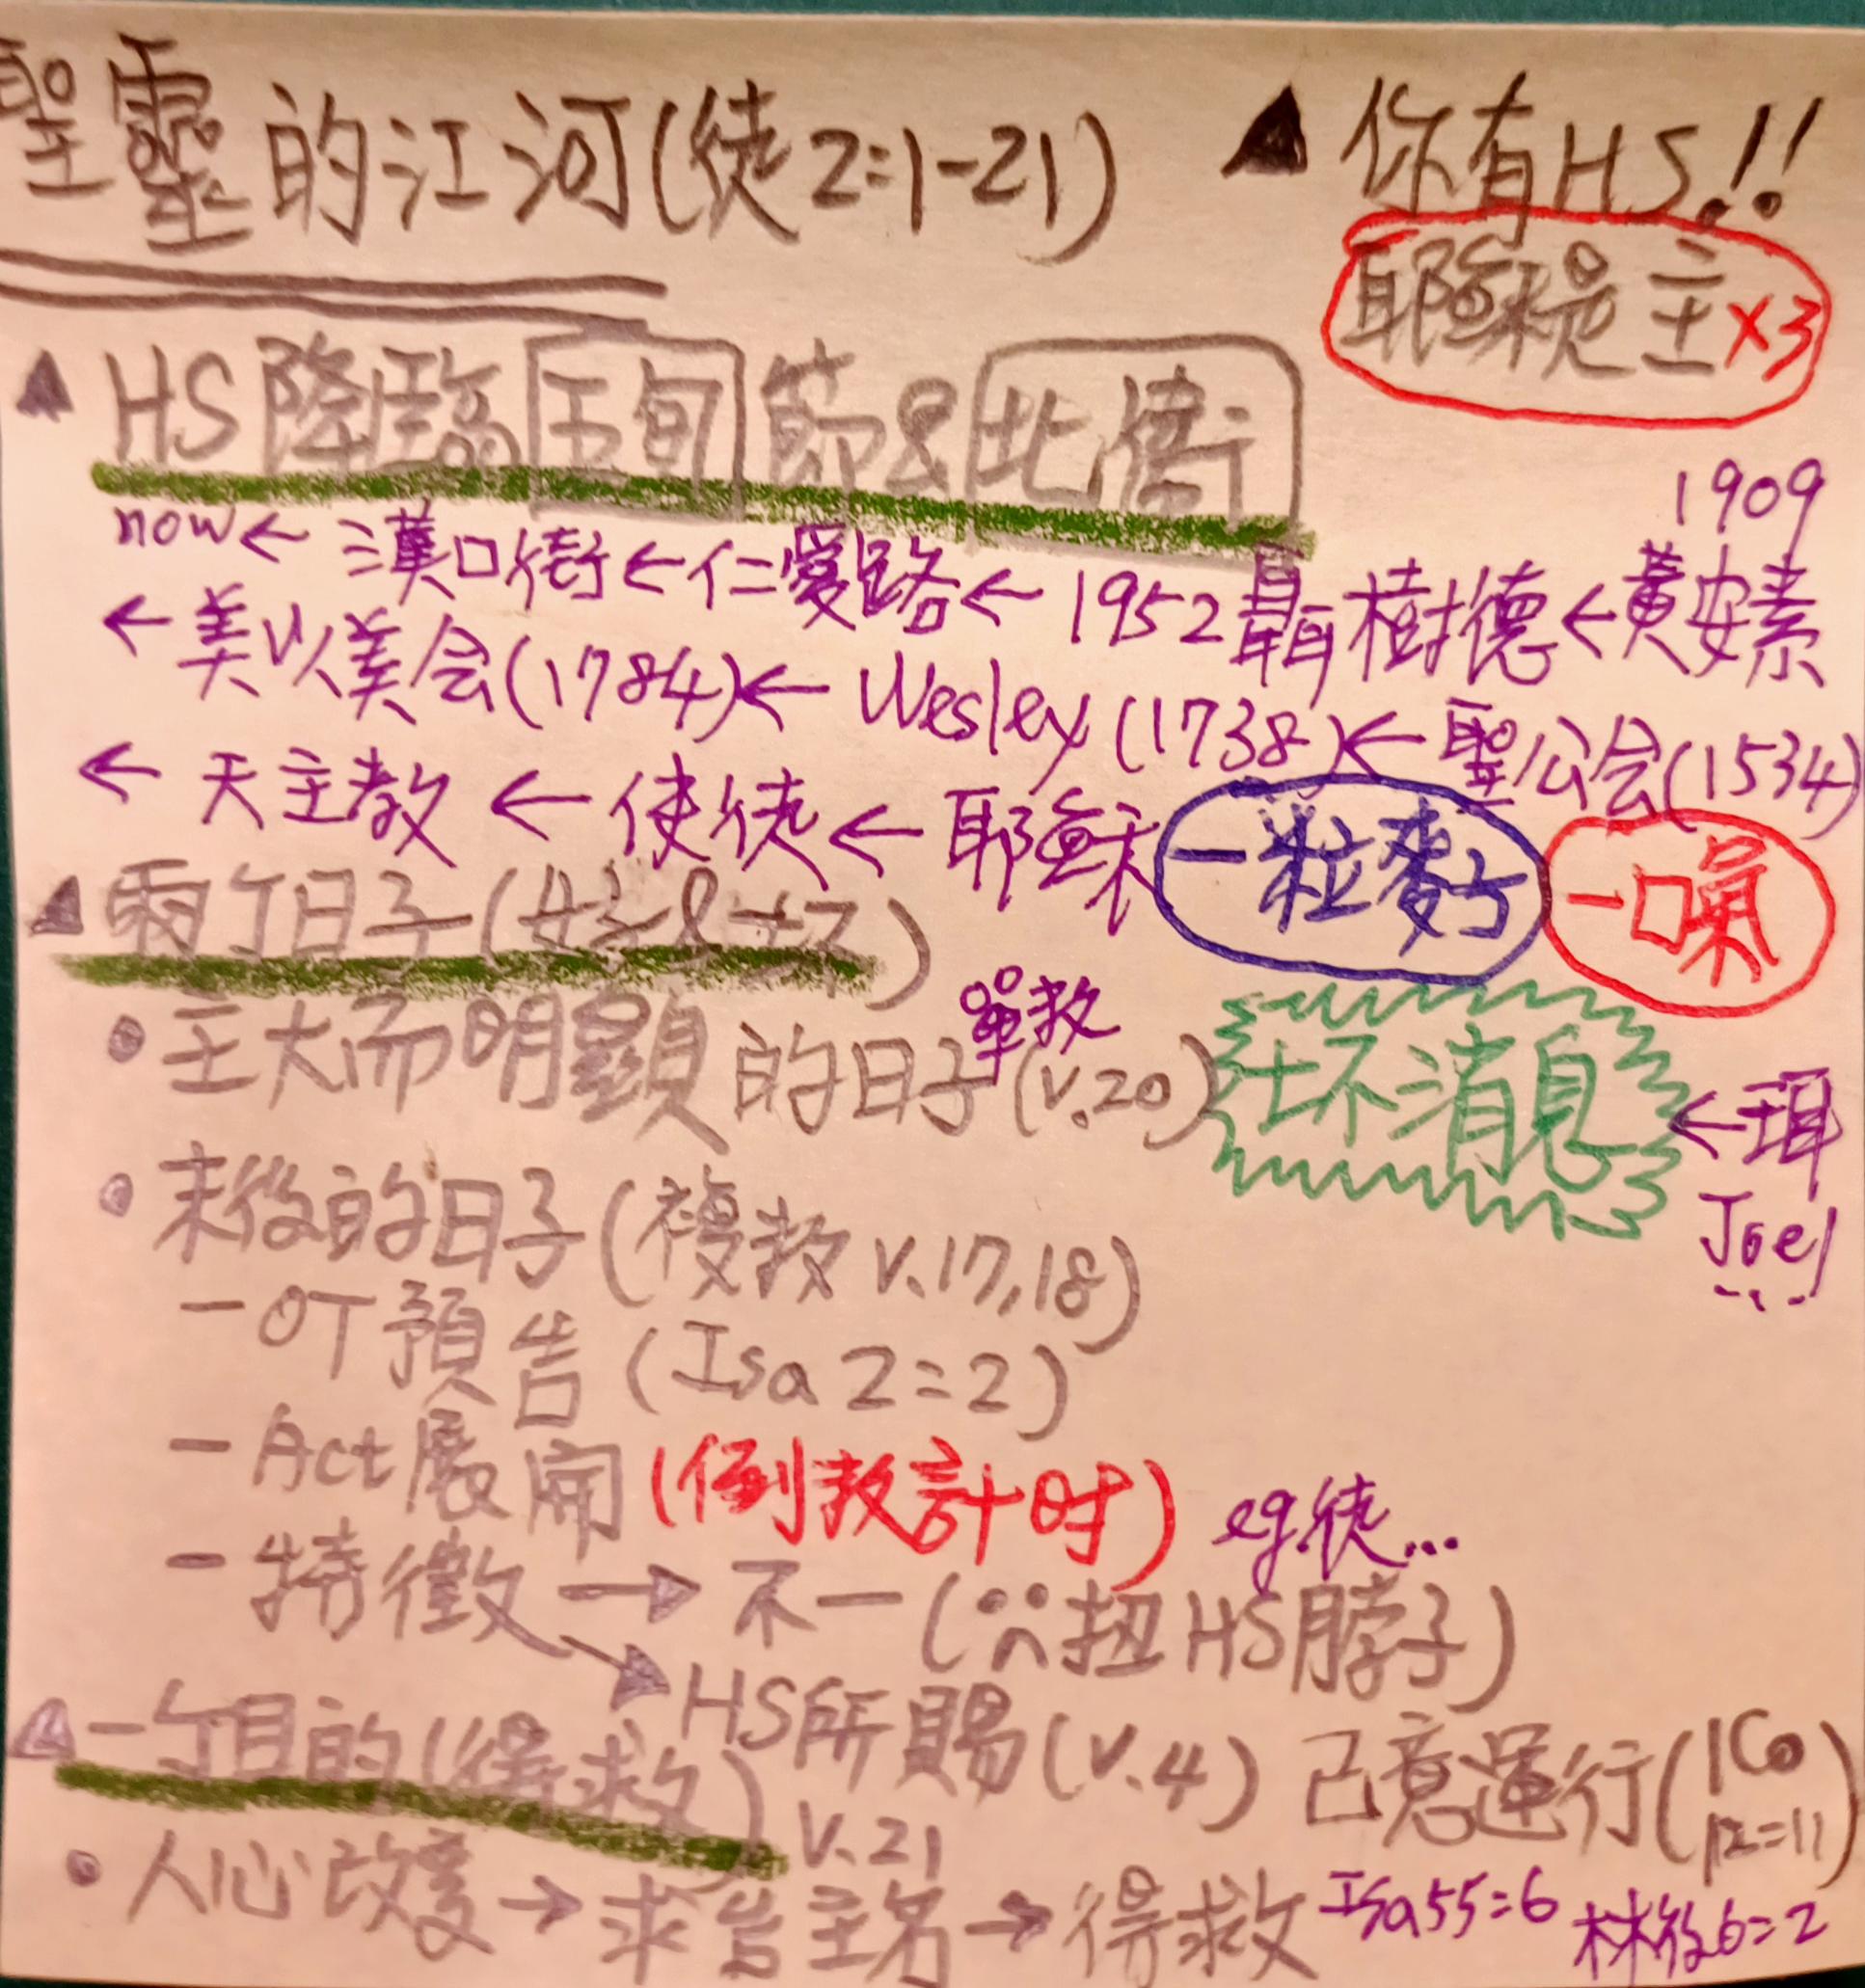 聖靈的江河(徒2:1-21)
▲你有HS!!
耶穌是主x3
▲HS降臨五旬節&此時
1909
now←漢口街←仁愛路←1952聶樹德←黃安素
←美以美会(1784)←Wesley(1738)←聖公会(1534)
←天主教←使徒←耶穌 一粒麥子 一口氣
▲兩个日子(好&
•主大而明顯的日子(v.20)
單数
坏消息
←珥
Joel
•末後的日子(複数v.17,18)
-OT預告(Isa 2:2)
-Act展開(倒数計时)
eg.徒...
-特徵→不一(扭HS脖子)
→HS所賜(v.4)己意運行(1Co 12:11)
▲一个目的(得救)v.21
•人心改變→求告主名→得救 Isa55:6 林後6:2